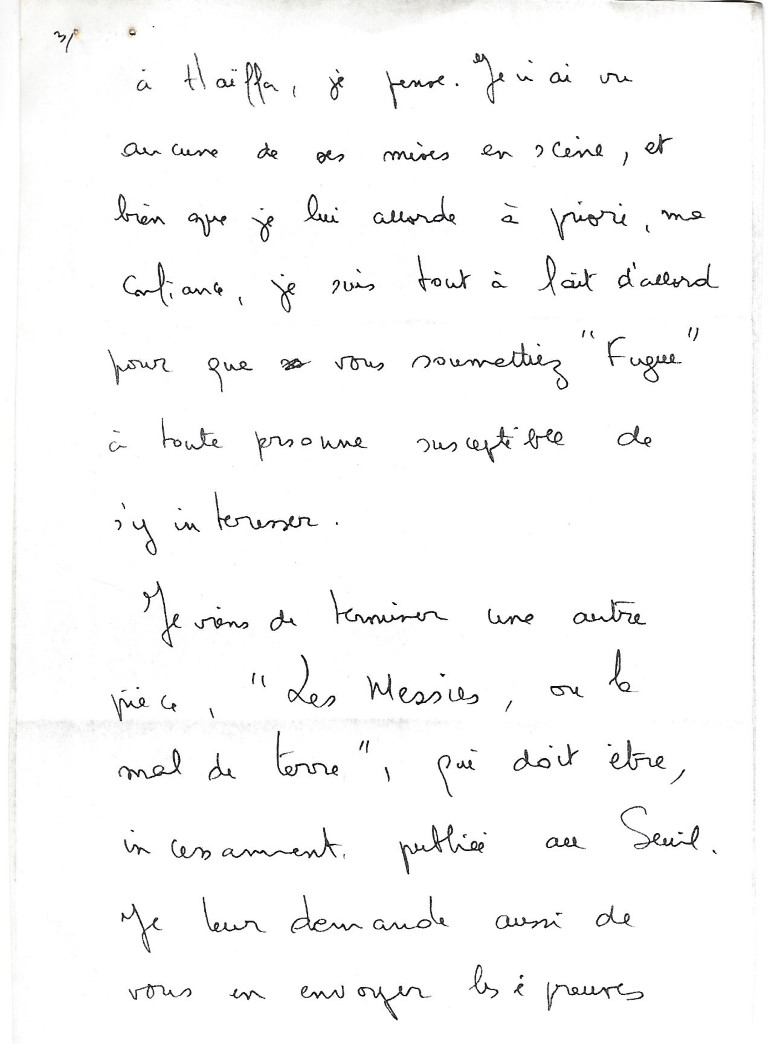 3/
à Haïffa, je pense. Je n'ai vu
aucune de ses mises en scène, et
bien que je lui accorde à priori, ma
confiance, je suis tout à fait d'accord
pour que vous soumettiez "Fugue"
à toute personne susceptible de
s'y interesser.
Je viens de terminer une autre
pièce, "Les Messies, ou le
mal de terre", qui doit être,
incessamment. publiée au Seuil.
Je leur demande aussi de
vous en envoyer les épreuves